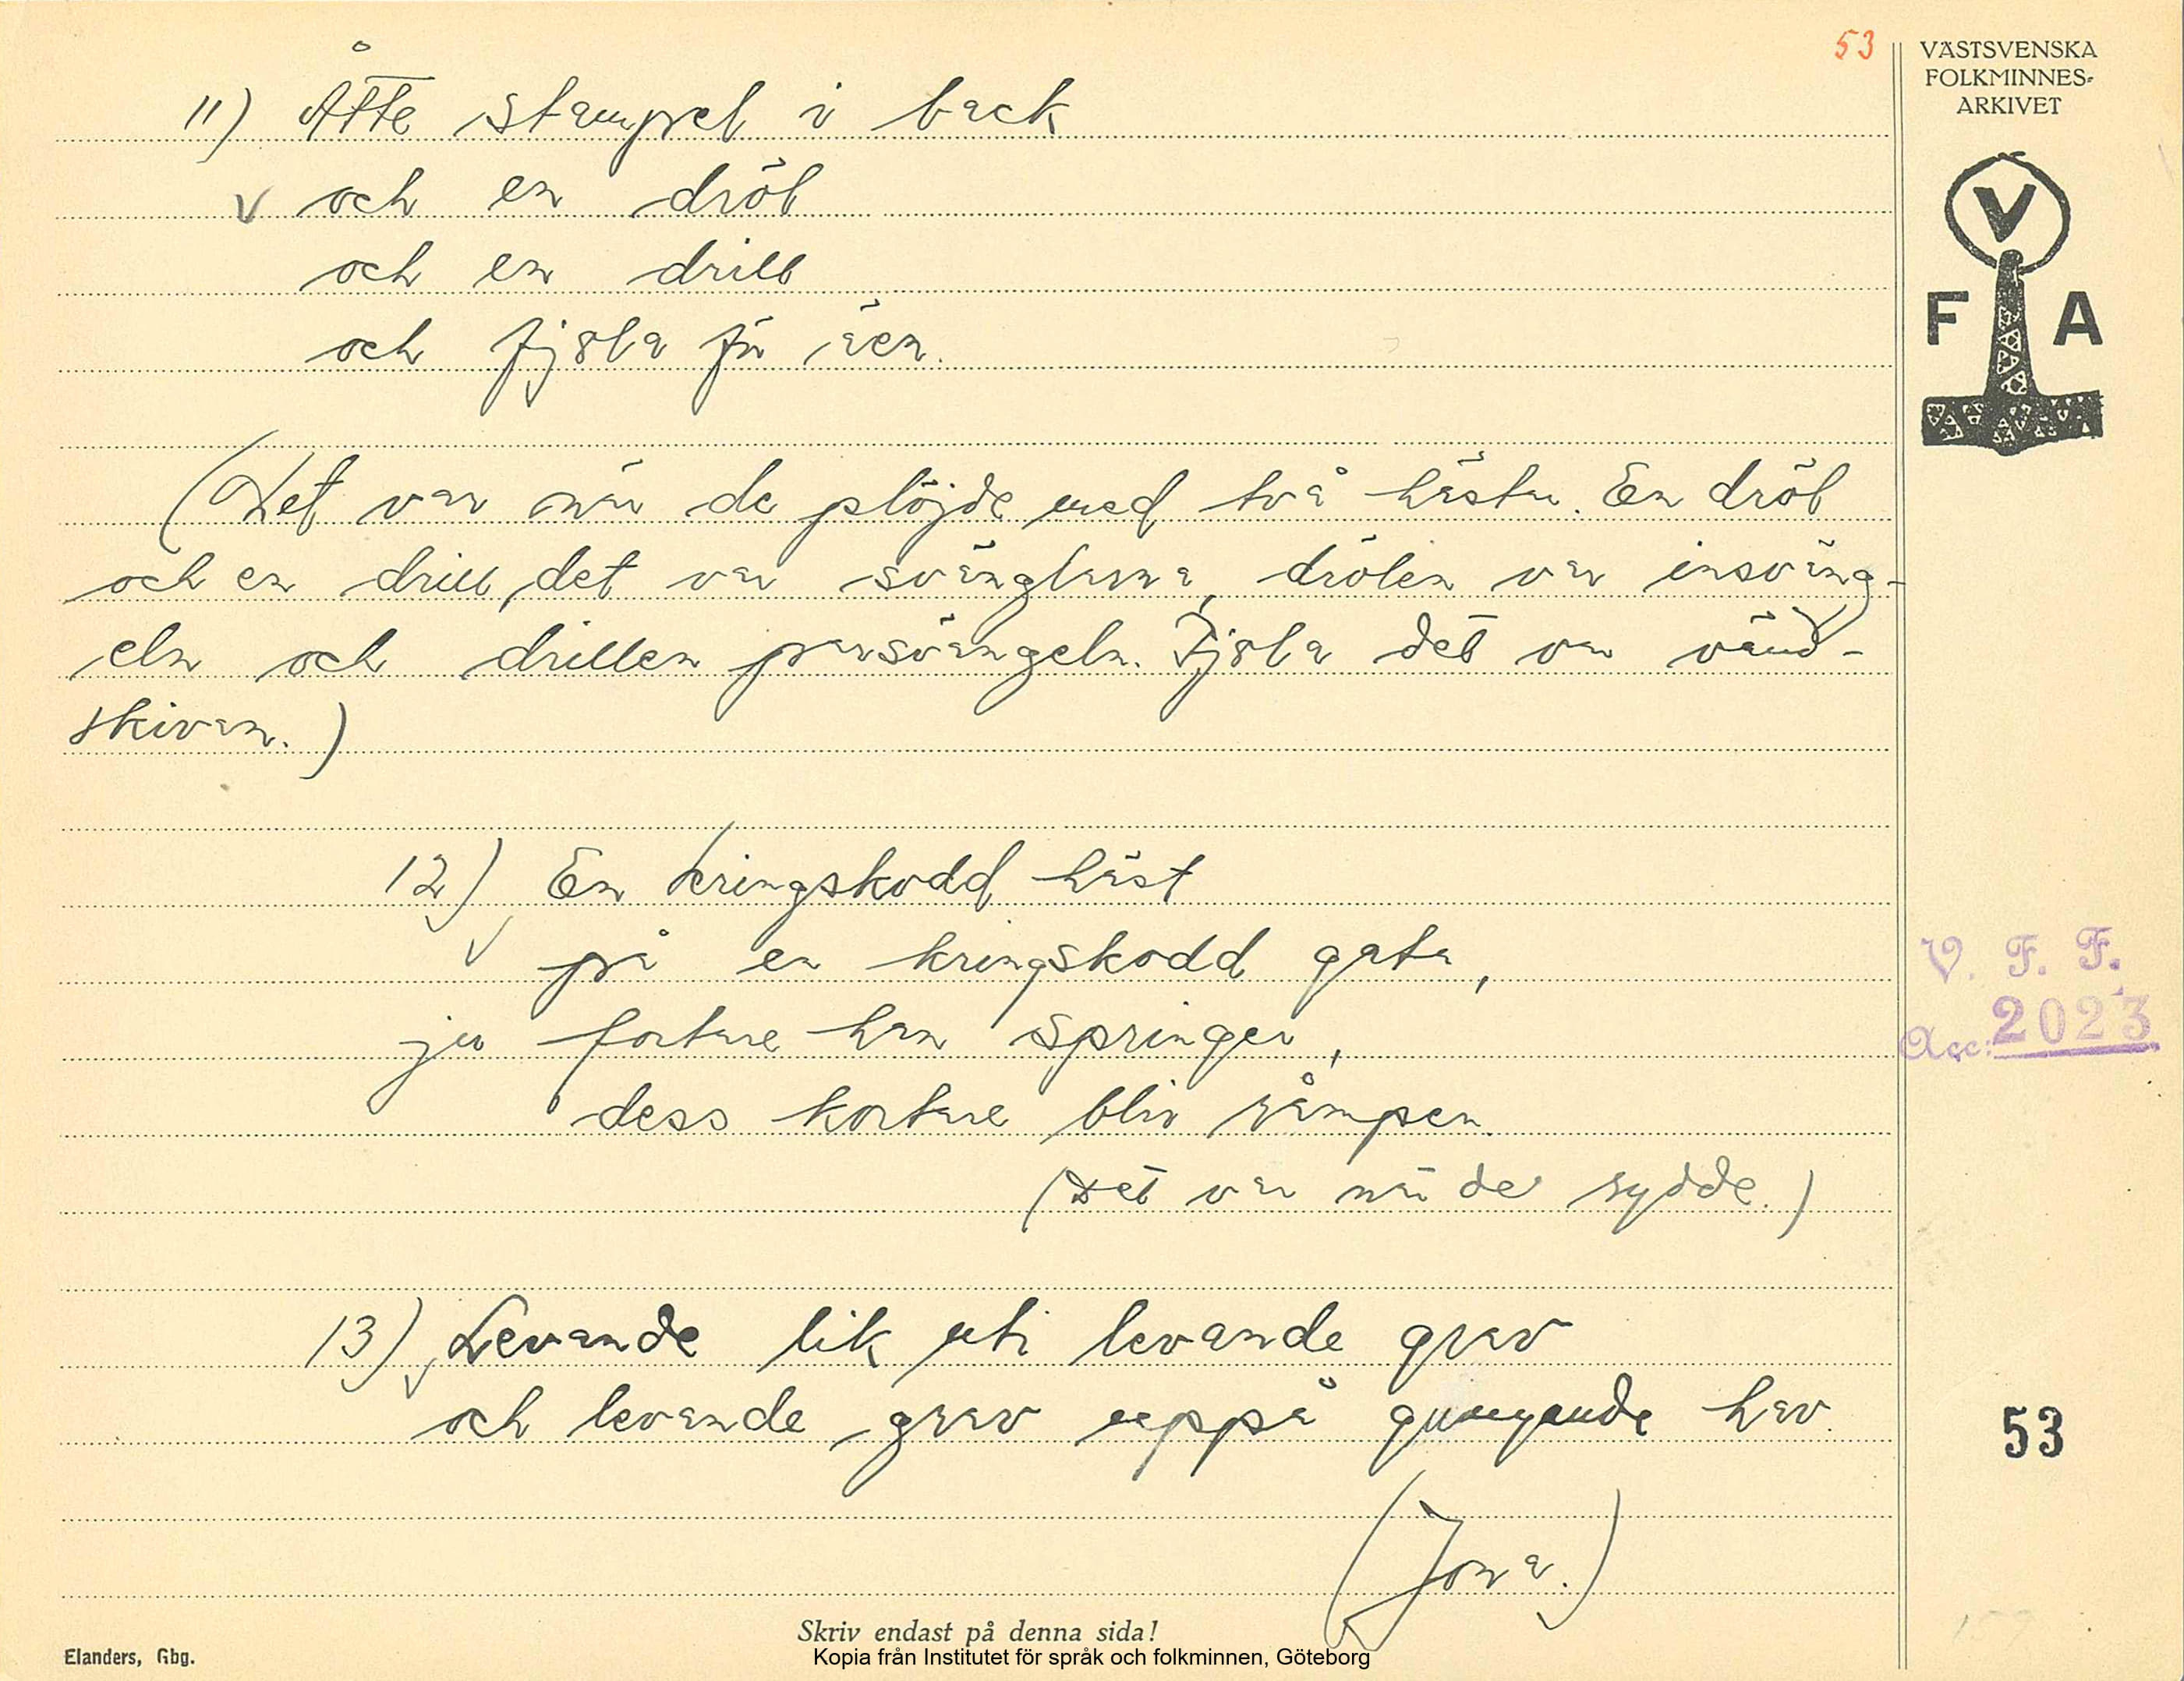 53
VÄSTSVENSKA
FOLKMINNES-
ARKIVET
V
F A
11) Åtte stampel i back
v och en dröl
och en drill
och fjöla för äen.
(Det var när de plöjde med två hästar. En dröl
och en drill, det var svänglarna, drölen var insväng-
eln och drillen parsvängeln. Fjöla det var vänd-
skivan.)
12) En kringskodd häst
v på en kringskodd gata,
ju fortare han springer,
dess kortare blir rämpen.
(Det var när de sydde.)
13) v Levande lik uti levande grav
och levande grav uppå gungande hav.
(Jona.)
V. F. F.
Acc: 2023
53
Skriv endast på denna sida!
Elanders, Gbg.
Kopia från Institutet för språk och folkminnen, Göteborg